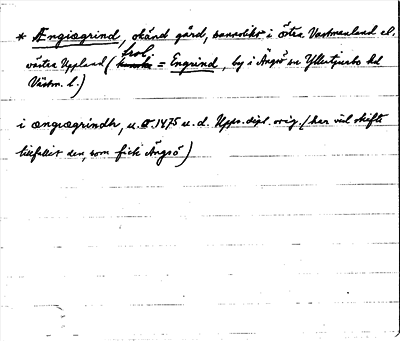 * Ængiægrind, okänd gård, sannolikt i östra Västmanland el.
västra Uppland ( trol. = Engrind, by i Ängsö sn Yttertjurbo hd
Västm. l.)
i ængiægrindh, u. 1475 u. d. Upps. dipl. orig. (har väl skifte
tillfallit den, som fick Ängsö)